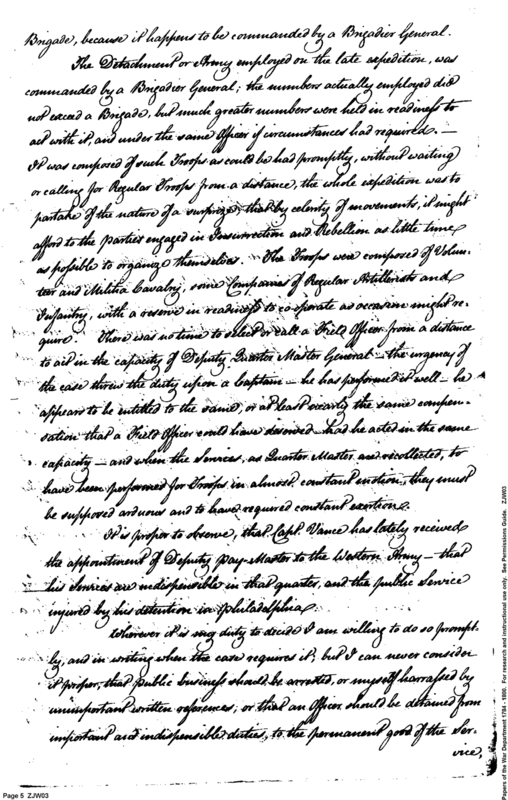 Brigade, because it happens to be commanded by a Brigadier General.
The Detachment or Army employed on the late expedition, was
commanded by a Brigadier General; the numbers actually employed did
not exceed a Brigade, but much greater numbers were held in readiness to
act with it, and under the same Officer if circumstances had required. —
It was composed of such Troops as could be had promptly, without waiting
or calling for Regular Troops from a distance, the whole expedition was to
partake of the nature of a surprize, that by celerity of movements, it might
afford to the parties engaged in Insurrection and Rebellion as little time
as possible to organize themselves. The Troops were composed of Volun-
teer and Militia Cavalry, some Companies of Regular Artillerists and
Infantry, with a reserve in readiness to co-operate as occasion might re-
quire. There was no time to select or call a Field Officer from a distance
to act in the capacity of Deputy Quarter Master General — the urgency of
the case threw the duty upon a Captain — he has performed it well — he
appears to be entitled to the same, or at least nearly the same compen-
sation that a Field Officer could have deserved had he acted in the same
capacity — and when the services, as Quarter Master are recollected, to
have been performed for Troops in almost constant motion, they must
be supposed arduous and to have required constant exertion.
It is proper to observe, that Capt. Vance has lately received
the appointment of Deputy Pay-Master to the Western Army — that
his Services are indispensible in that quarter, and the public Service
injured by his detention in Philadelphia.
Wherever it is my duty to decide I am willing to do so prompt-
ly, and in writing when the case requires it; but I can never consider
it proper, that public business should be arrested, or myself harrassed by
unimportant written references, or that an Officer should be detained from
important and indispensible duties, to the permanent good of the Ser-
vice,
Page 5 ZJW03
Papers of the War Department 1784 - 1800. For research and instructional use only. See Permissions Guide. ZJW03